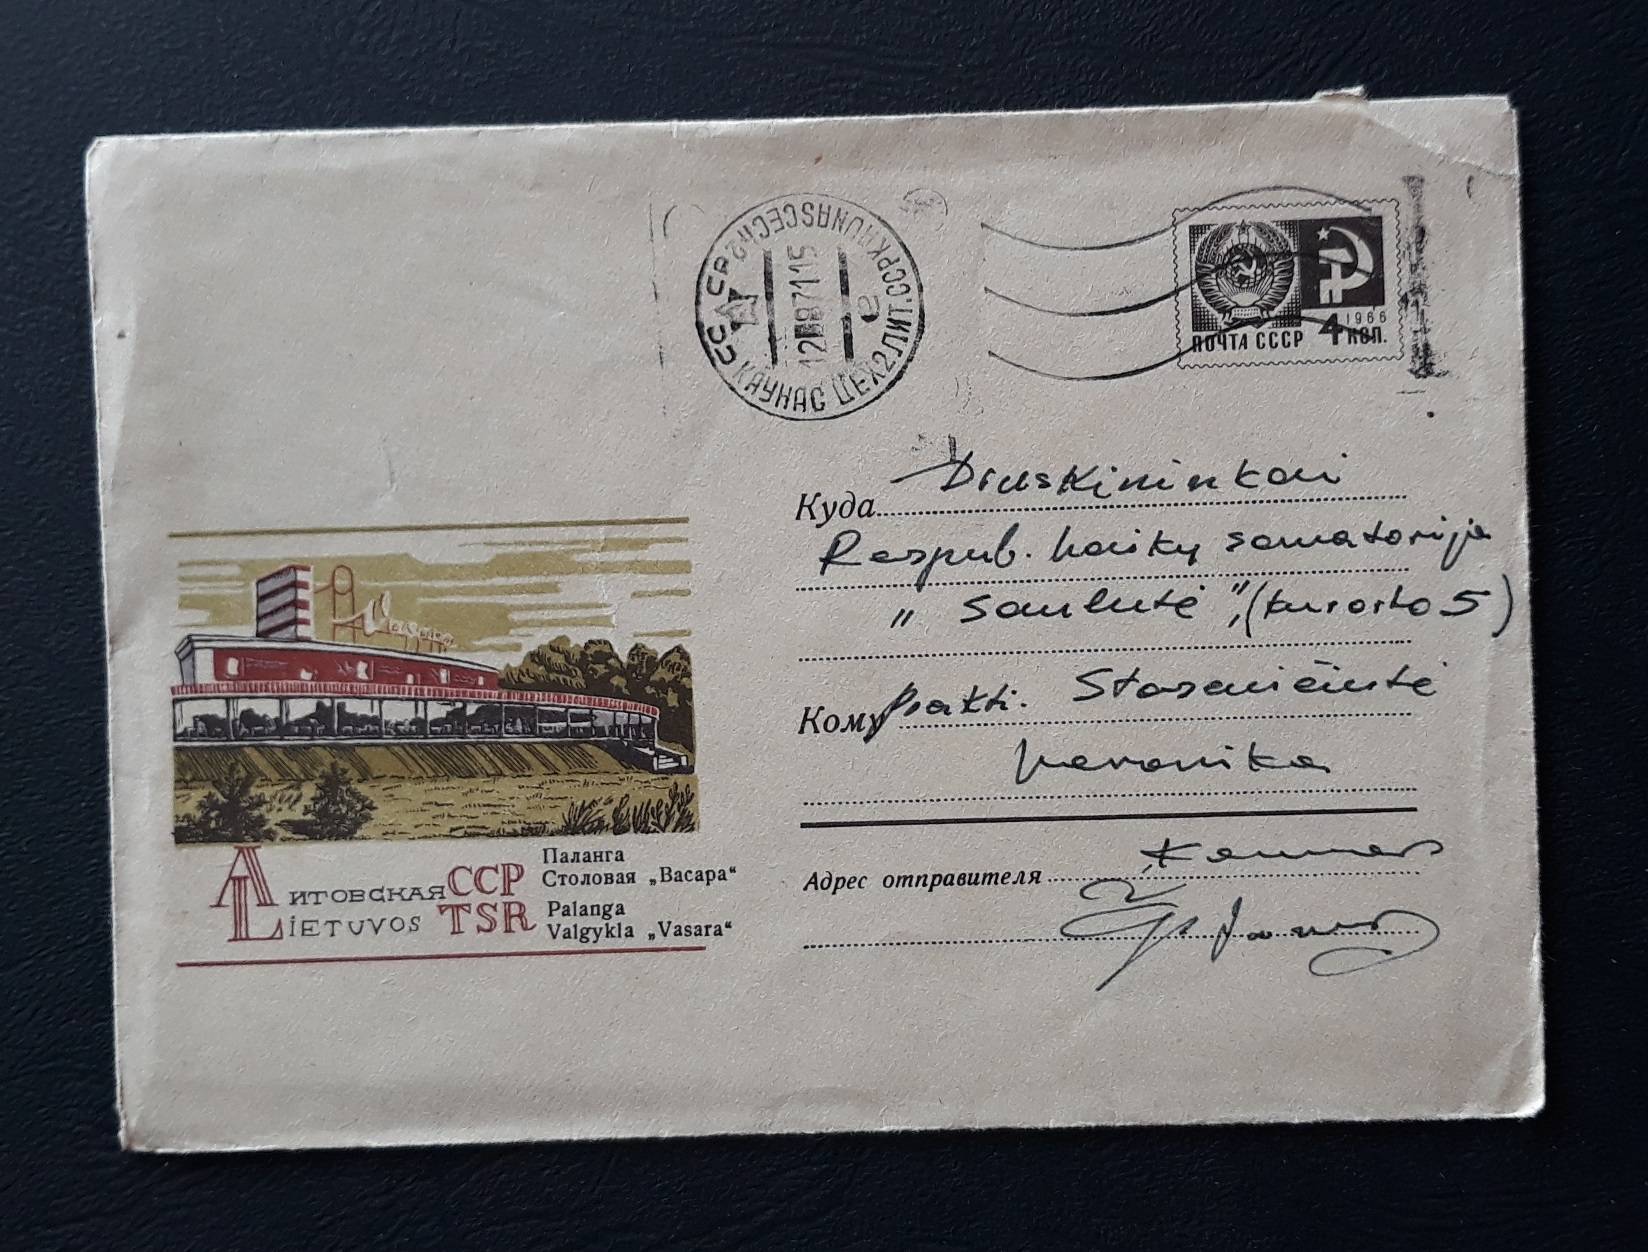 СССР КАУНАС ЦЕХ 2 ЛИТ.ССР KAUNAS CECH 2
12 8 71 15
а
1966
ПОЧТА СССР 4 КОП.
Куда Druskininkai
Respub. vaikų sanatorija
„ Saulutė ”, (kurorto 5)
Кому Prakti.
Veronika
Адрес отправителя Kaunas
Vasara
ЛИТОВСКАЯ ССР
LIETUVOS TSR
Паланга
Столовая „Васара“
Palanga
Valgykla „Vasara“